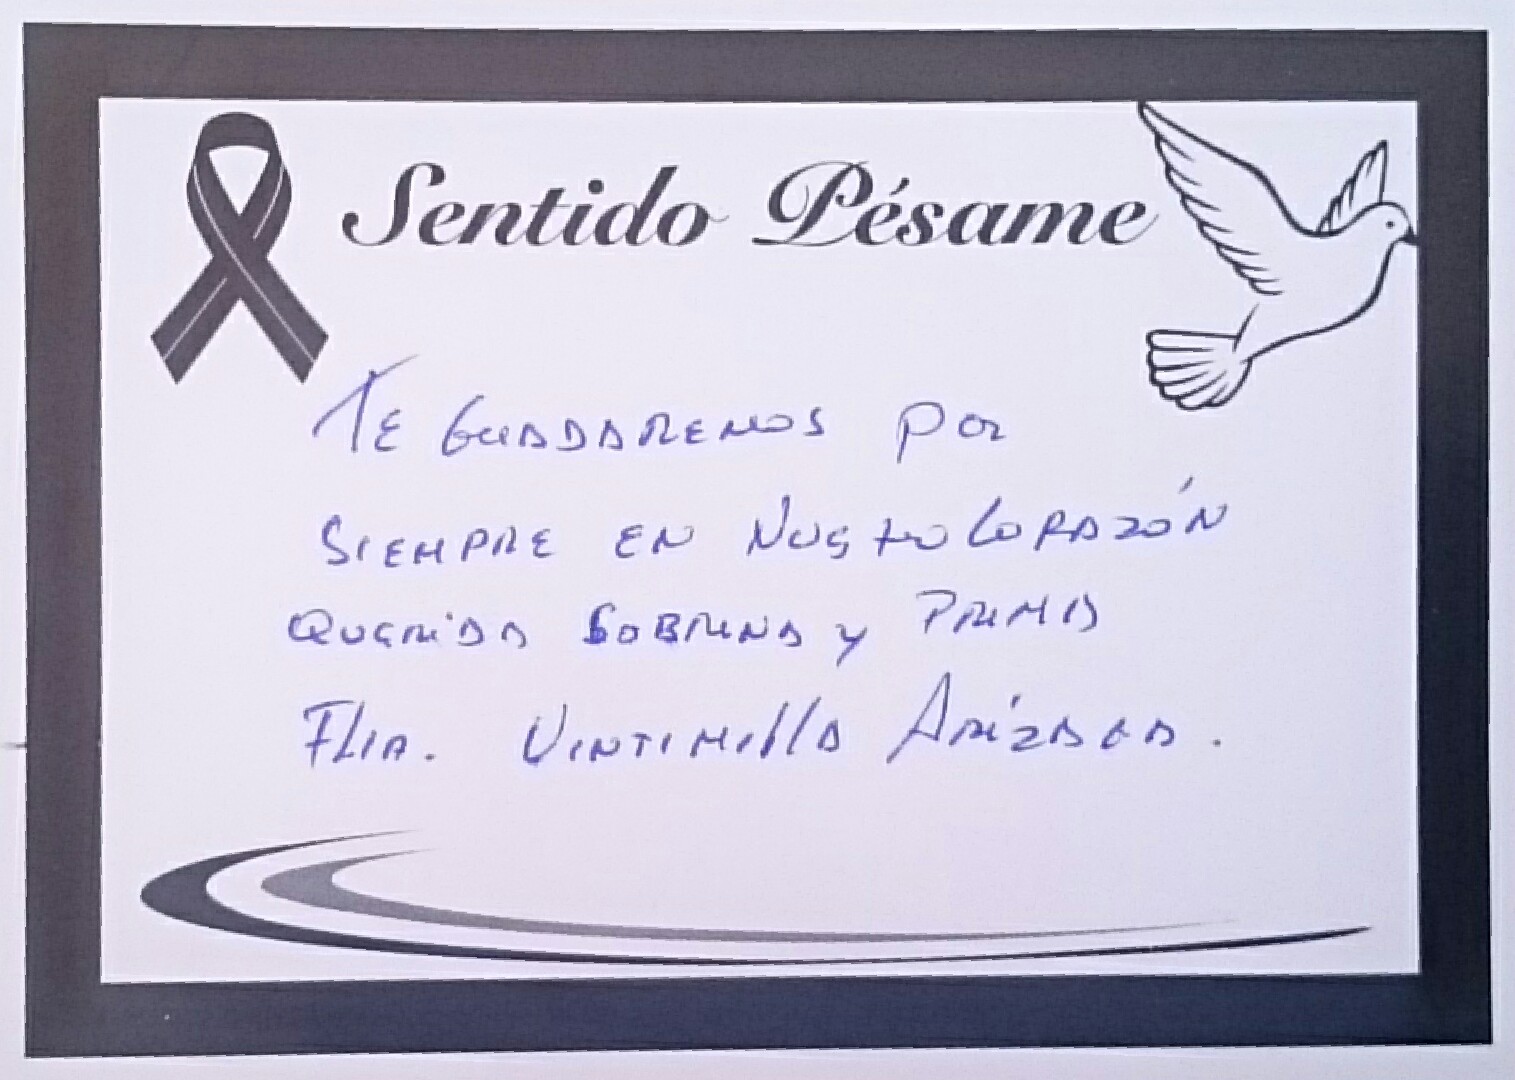 Sentido Pésame
Te guadaremos por
siempre en nustro corazón
querida sobrina y prima
Flia. Vintimilla Arízaga.